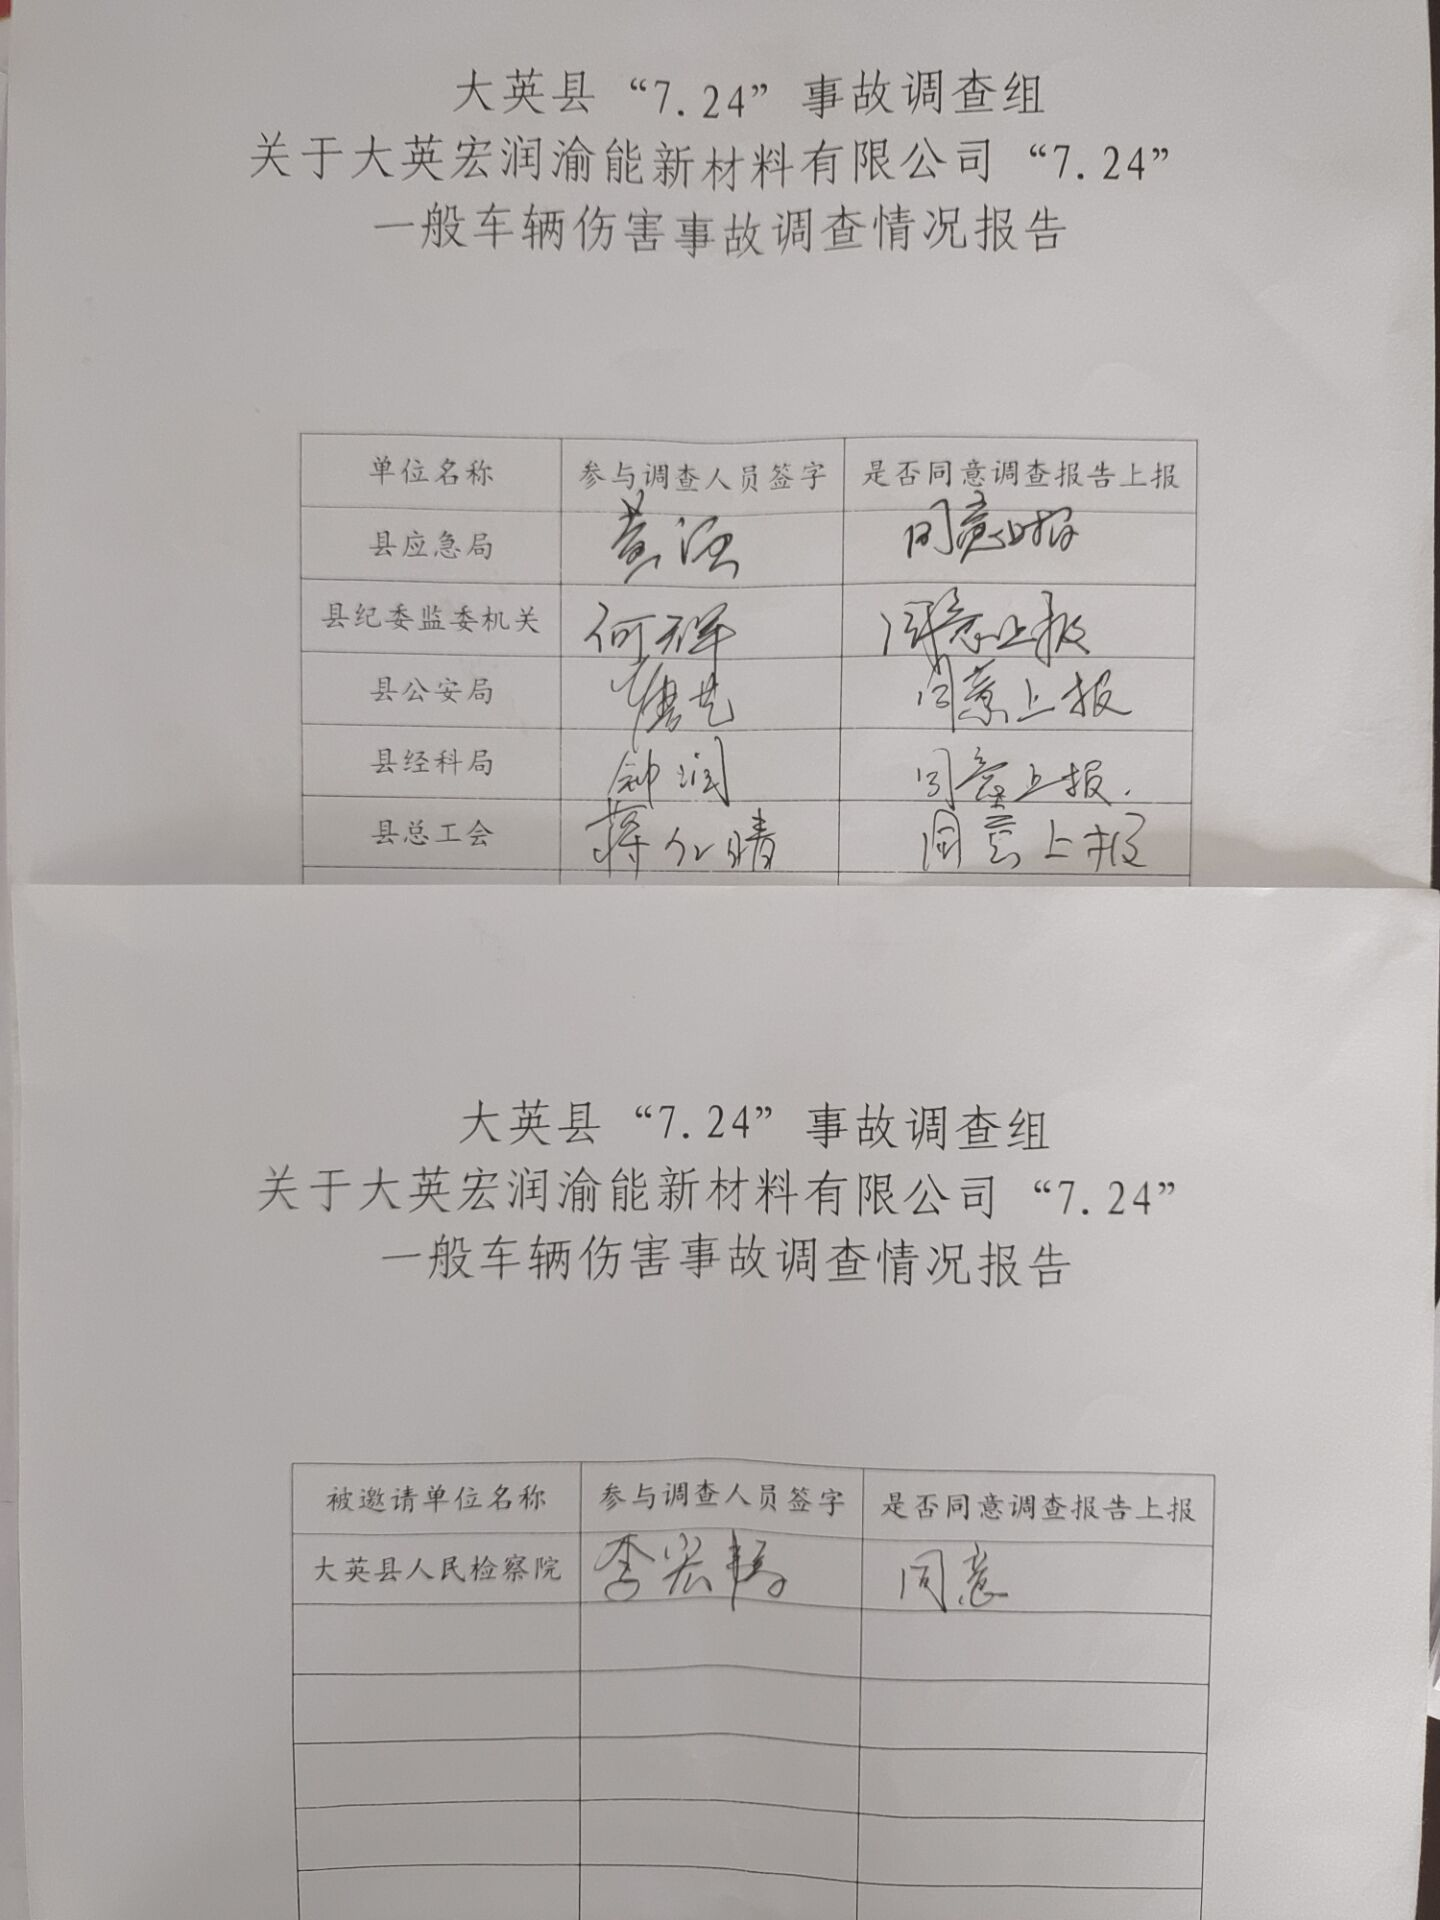 大英县“7.24”事故调查组
关于大英宏润渝能新材料有限公司“7.24”
一般车辆伤害事故调查情况报告
单位名称 参与调查人员签字 是否同意调查报告上报
县应急局 黄 同意上报
县纪委监委机关 何 同意上报
县公安局 同意上报
县经科局 钟润 同意上报.
县总工会 蒋 晴 同意上报
大英县“7.24”事故调查组
关于大英宏润渝能新材料有限公司“7.24”
一般车辆伤害事故调查情况报告
被邀请单位名称 参与调查人员签字 是否同意调查报告上报
大英县人民检察院 李宏 同意